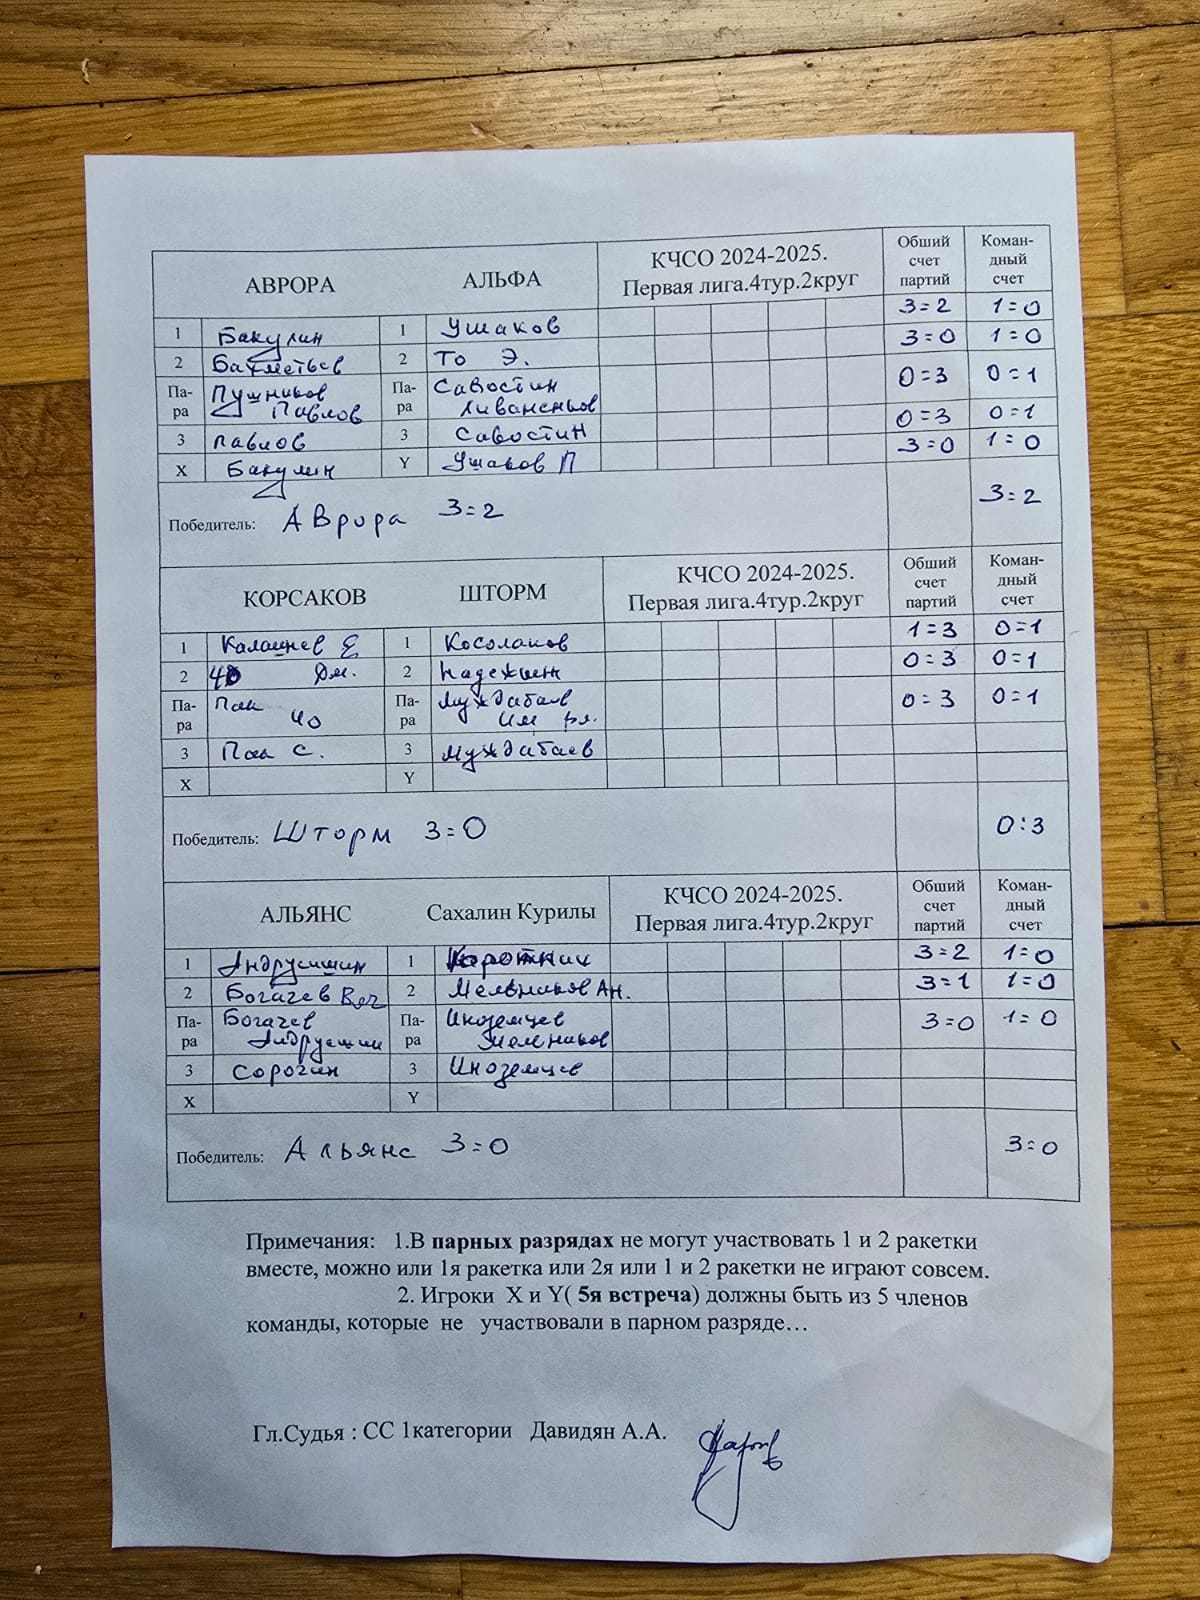 АВРОРА АЛЬФА КЧСО 2024-2025. Первая лига.4тур.2круг Обший счет партий Коман-дный счет
1 Бакулин 1 Ушаков 3=2 1=0
2 Бахметьев 2 То Э. 3=0 1=0
Па-ра Пушников Павлов Па-ра Савостин Ливаненков 0=3 0=1
3 Павлов 3 Савостин 0=3 0=1
X Бакулин Y Ушаков П 3=0 1=0
Победитель: Аврора 3=2 3=2
КОРСАКОВ ШТОРМ КЧСО 2024-2025. Первая лига.4тур.2круг Обший счет партий Коман-дный счет
1 Калашнев Е 1 Косолапов 1=3 0=1
2 Чо Дм. 2 Надежкин 0=3 0=1
Па-ра Пак Чо Па-ра Муждабаев 0=3 0=1
3 Пак С. 3 Муждабаев
X Y
Победитель: Шторм 3=0 0:3
АЛЬЯНС Сахалин Курилы КЧСО 2024-2025. Первая лига.4тур.2круг Обший счет партий Коман-дный счет
1 Андрусишин 1 Коротких 3=2 1=0
2 Богачев Вяч 2 Мельников Ан. 3=1 1=0
Па-ра Богачев Андрусишин Па-ра Иноземцев Мельников 3=0 1=0
3 Сорогин 3 Иноземцев
X Y
Победитель: Альянс 3=0 3=0
Примечания: 1.В парных разрядах не могут участвовать 1 и 2 ракетки
вместе, можно или 1я ракетка или 2я или 1 и 2 ракетки не играют совсем.
2. Игроки X и Y( 5я встреча) должны быть из 5 членов
команды, которые не участвовали в парном разряде…
Гл.Судья : СС 1категории Давидян А.А.